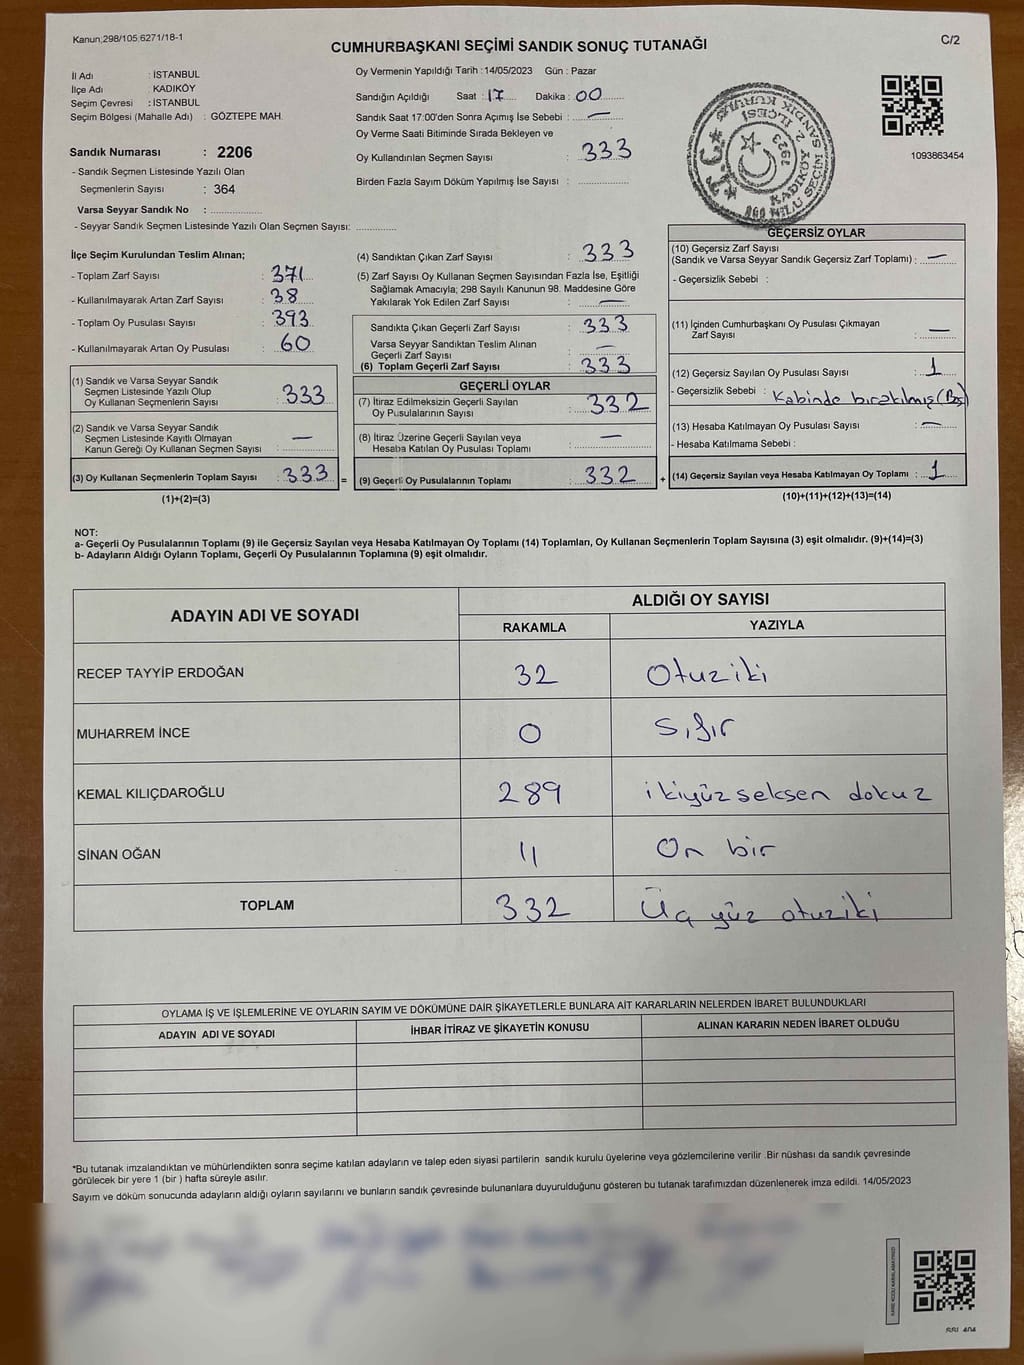 Kanun;298/105;6271/18-1
CUMHURBAŞKANI SEÇİMİ SANDIK SONUÇ TUTANAĞI
C/2
İl Adı : İSTANBUL
İlçe Adı : KADIKÖY
Seçim Çevresi : İSTANBUL
Seçim Bölgesi (Mahalle Adı) : GÖZTEPE MAH.
Sandık Numarası : 2206
- Sandık Seçmen Listesinde Yazılı Olan
Seçmenlerin Sayısı : 364
Varsa Seyyar Sandık No :
- Seyyar Sandık Seçmen Listesinde Yazılı Olan Seçmen Sayısı:
Oy Vermenin Yapıldığı Tarih : 14/05/2023 Gün : Pazar
Sandığın Açıldığı Saat : 17 Dakika : 00
Sandık Saat 17:00'den Sonra Açımış İse Sebebi : —
Oy Verme Saati Bitiminde Sırada Bekleyen ve
Oy Kullandırılan Seçmen Sayısı : 333
Birden Fazla Sayım Döküm Yapılmış İse Sayısı :
T.C.
KADIKÖY 2. İLÇESİ
SANDIK KURULU
1923
1093863454
İlçe Seçim Kurulundan Teslim Alınan;
- Toplam Zarf Sayısı : 371
- Kullanılmayarak Artan Zarf Sayısı : 38
- Toplam Oy Pusulası Sayısı : 393
- Kullanılmayarak Artan Oy Pusulası : 60
(1) Sandık ve Varsa Seyyar Sandık
Seçmen Listesinde Yazılı Olup
Oy Kullanan Seçmenlerin Sayısı : 333
(2) Sandık ve Varsa Seyyar Sandık
Seçmen Listesinde Kayıtlı Olmayan
Kanun Gereği Oy Kullanan Seçmen Sayısı : —
(3) Oy Kullanan Seçmenlerin Toplam Sayısı : 333 =
(1)+(2)=(3)
(4) Sandıktan Çıkan Zarf Sayısı : 333
(5) Zarf Sayısı Oy Kullanan Seçmen Sayısından Fazla İse, Eşitliği
Sağlamak Amacıyla; 298 Sayılı Kanunun 98. Maddesine Göre
Yakılarak Yok Edilen Zarf Sayısı : —
Sandıkta Çıkan Geçerli Zarf Sayısı : 333
Varsa Seyyar Sandıktan Teslim Alınan
Geçerli Zarf Sayısı : —
(6) Toplam Geçerli Zarf Sayısı : 333
GEÇERLİ OYLAR
(7) İtiraz Edilmeksizin Geçerli Sayılan
Oy Pusulalarının Sayısı : 332
(8) İtiraz Üzerine Geçerli Sayılan veya
Hesaba Katılan Oy Pusulaları Toplamı : —
(9) Geçerli Oy Pusulalarının Toplamı : 332 +
GEÇERSİZ OYLAR
(10) Geçersiz Zarf Sayısı
(Sandık ve Varsa Seyyar Sandık Geçersiz Zarf Toplamı) : —
- Geçersizlik Sebebi :
(11) İçinden Cumhurbaşkanı Oy Pusulası Çıkmayan
Zarf Sayısı : —
(12) Geçersiz Sayılan Oy Pusulası Sayısı : 1
- Geçersizlik Sebebi : Kabinde bırakılmış (Boş)
(13) Hesaba Katılmayan Oy Pusulası Sayısı : —
- Hesaba Katılmama Sebebi :
(14) Geçersiz Sayılan veya Hesaba Katılmayan Oy Toplamı : 1
(10)+(11)+(12)+(13)=(14)
NOT:
a- Geçerli Oy Pusulalarının Toplamı (9) ile Geçersiz Sayılan veya Hesaba Katılmayan Oy Toplamı (14) Toplamları, Oy Kullanan Seçmenlerin Toplam Sayısına (3) eşit olmalıdır. (9)+(14)=(3)
b- Adayların Aldığı Oyların Toplamı, Geçerli Oy Pusulalarının Toplamına (9) eşit olmalıdır.
ADAYIN ADI VE SOYADI
ALDIĞI OY SAYISI
RAKAMLA YAZIYLA
RECEP TAYYİP ERDOĞAN 32 Otuziki
MUHARREM İNCE 0 Sıfır
KEMAL KILIÇDAROĞLU 289 ikiyüz seksen dokuz
SİNAN OĞAN 11 On bir
TOPLAM 332 Üç yüz otuziki
OYLAMA İŞ VE İŞLEMLERİNE VE OYLARIN SAYIM VE DÖKÜMÜNE DAİR ŞİKAYETLERLE BUNLARA AİT KARARLARIN NELERDEN İBARET BULUNDUKLARI
ADAYIN ADI VE SOYADI İHBAR İTİRAZ VE ŞİKAYETİN KONUSU ALINAN KARARIN NEDEN İBARET OLDUĞU
*Bu tutanak imzalandıktan ve mühürlendikten sonra seçime katılan adayların ve talep eden siyasi partilerin sandık kurulu üyelerine veya gözlemcilerine verilir .Bir nüshası da sandık çevresinde
görülecek bir yere 1 (bir ) hafta süreyle asılır.
Sayım ve döküm sonucunda adayların aldığı oyların sayılarını ve bunların sandık çevresinde bulunanlara duyurulduğunu gösteren bu tutanak tarafımızdan düzenlenerek imza edildi. 14/05/2023